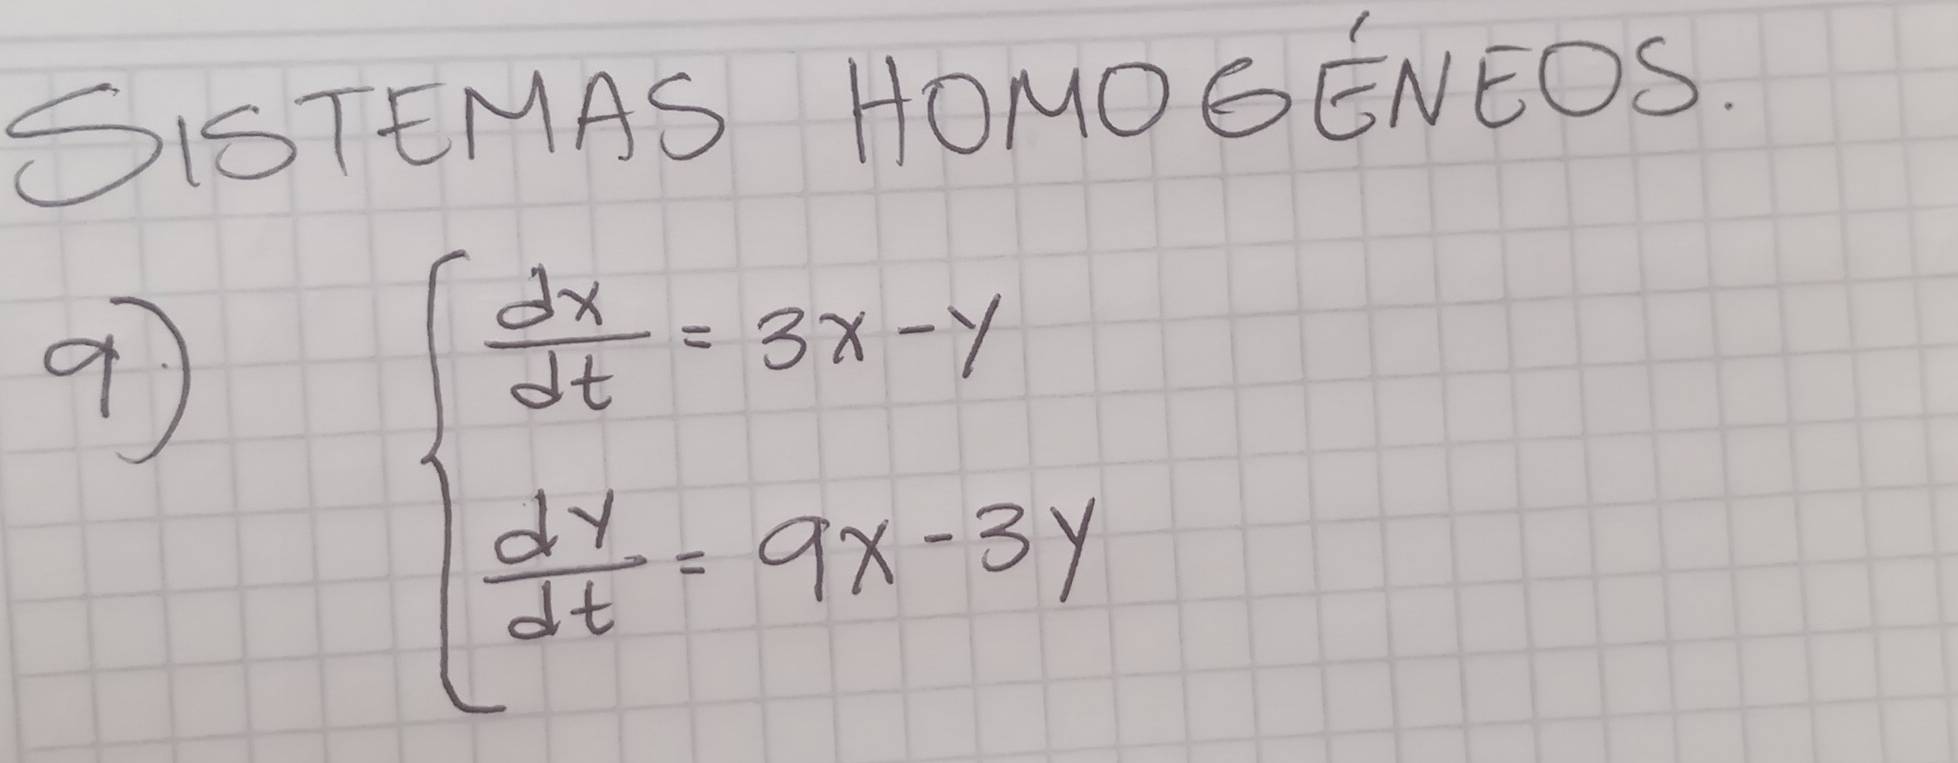 SISTEMAS HOMOGÉNEOS.
9) { dx/dt = 3x - y
dy/dt = 9x - 3y